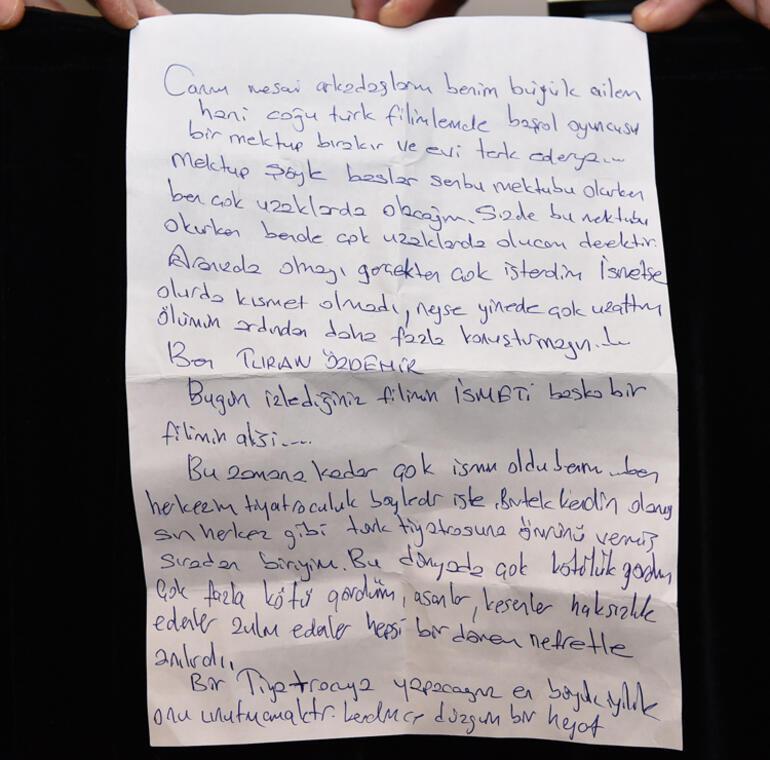 Canım mesai arkadaşlarım benim büyük ailem
hani çoğu türk filimlerinde başrol oyuncusu
bir mektup bırakır ve evi terk ederya...
Mektup şöyle başlar sen bu mektubu okurken
ben çok uzaklarda olacağım. Sizde bu mektubu
okurken bende çok uzaklarda olucam
Aranızda olmayı gerçekten çok isterdim İsmetse
olurda kısmet olmadı, neyse yinede çok uzattım
ölümün ardından daha fazla konuşturmayın...
Ben TURAN ÖZDEMİR
Bugün izlediğiniz filimin İSMETİ başka bir
filimin
Bu zamana kadar çok ismim oldu benim ben
herkezim tiyatroculuk böyledir işte. Bir tek kendin olamıyor
sun herkez gibi türk tiyatrosuna ömrünü vermiş
sıradan biriyim. Bu dünyada çok kötülük gördüm
Çok fazla kötü gördüm, asarlar, keserler haksızlık
ederler zulm ederler hepsi bir dönem nefretle
anılırdı,
Bir Tiyatrocuya yapacağınız en büyük iyilik
onu unutmamaktır. kendinize düzgün bir hayat